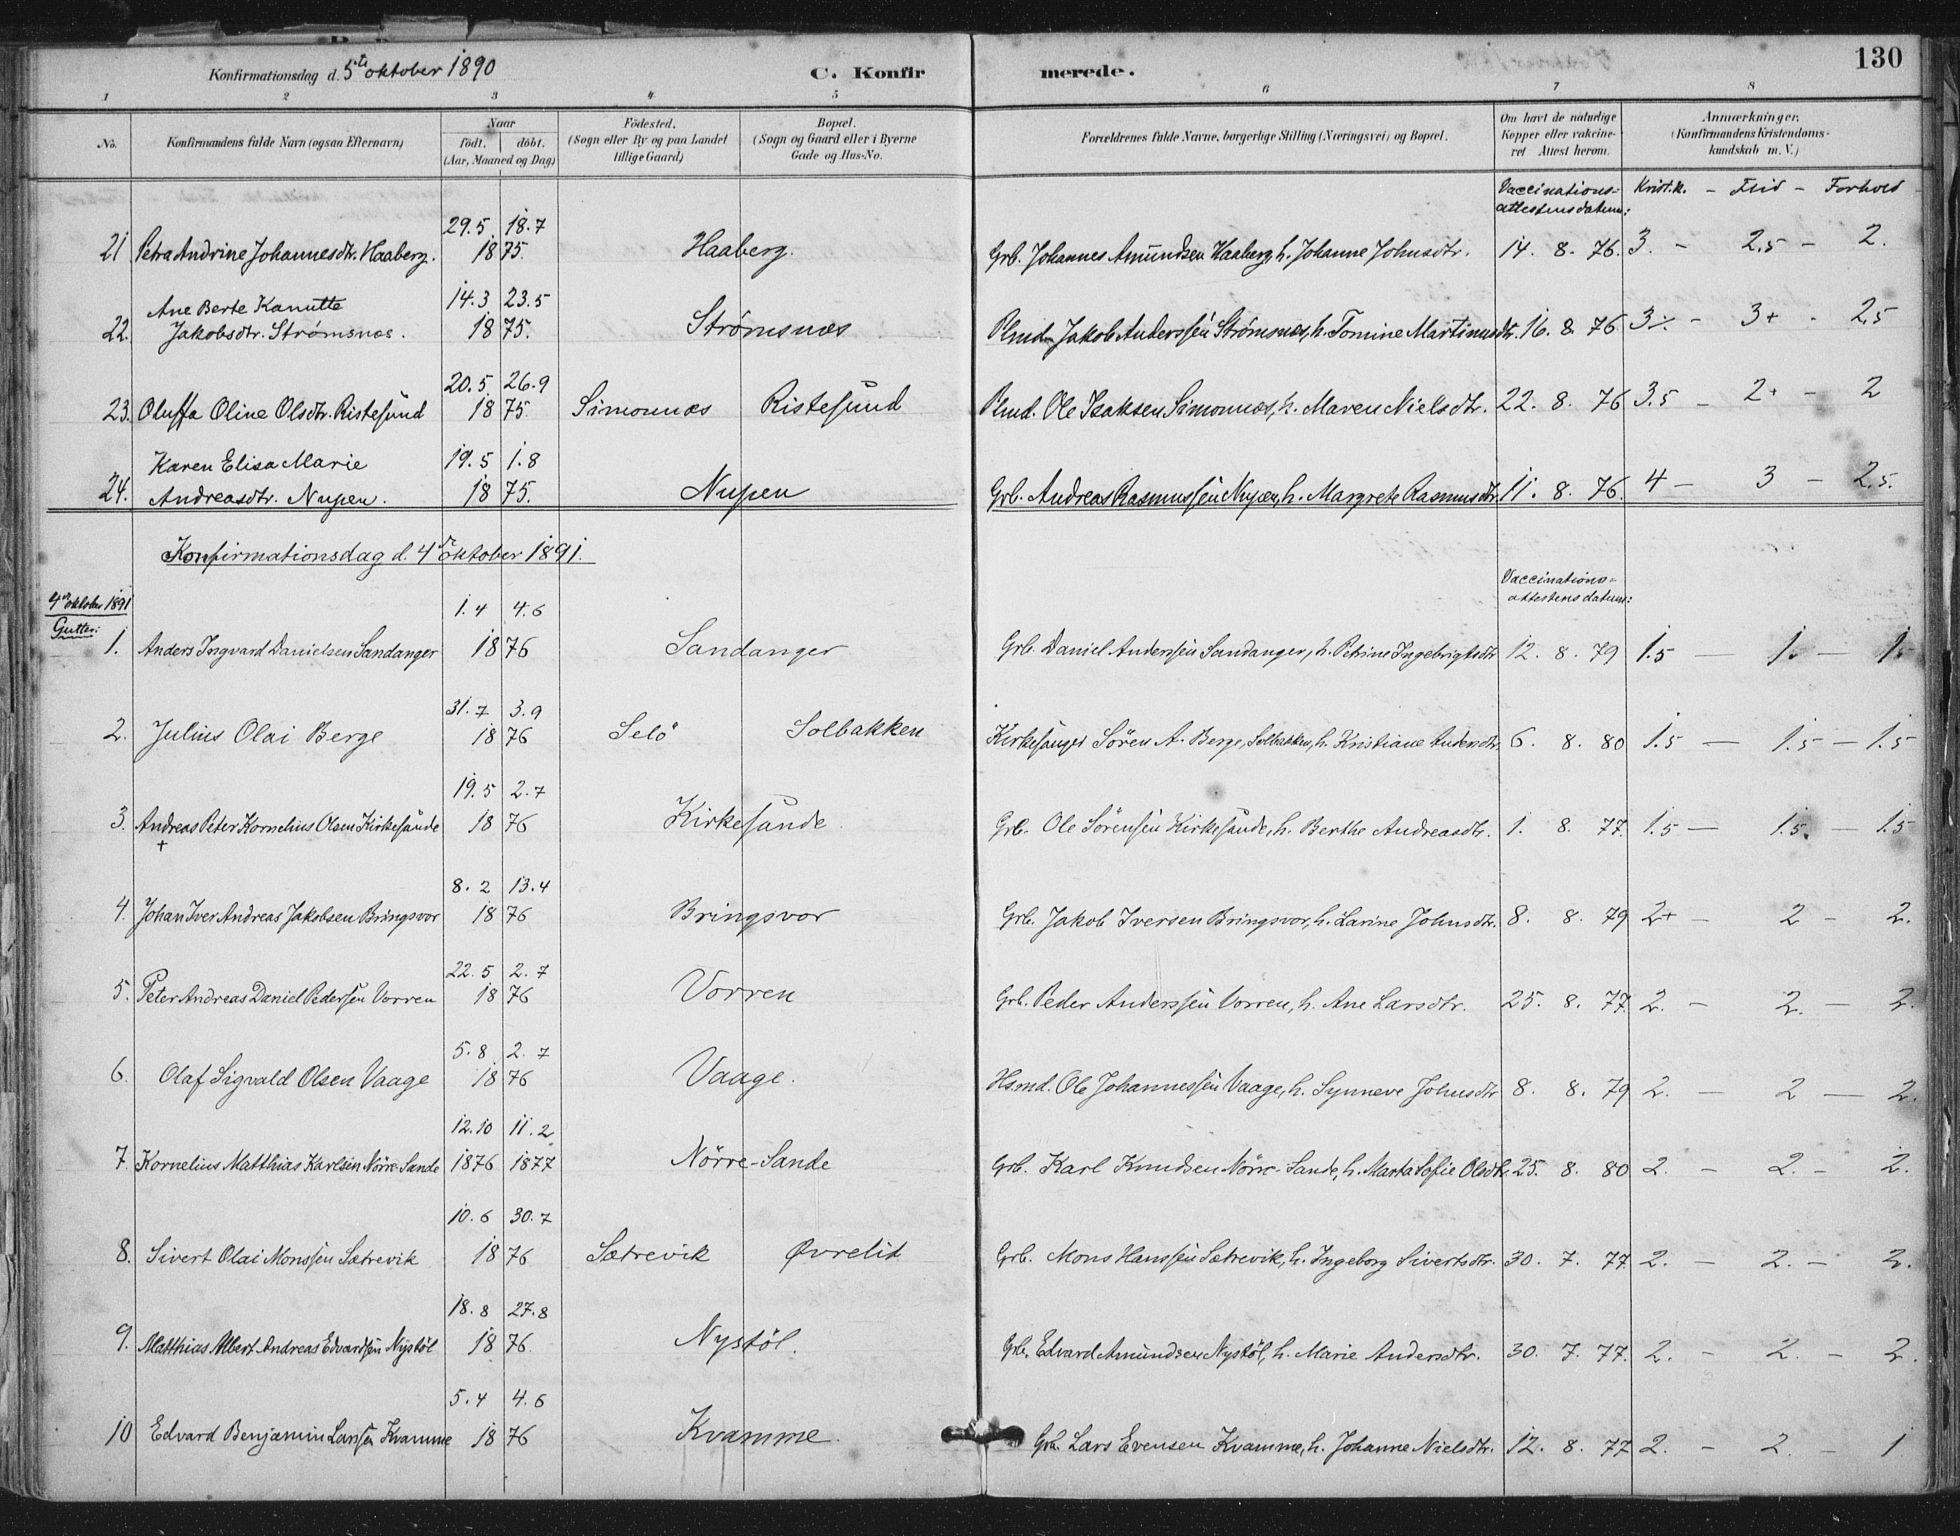 Konfirmationsdag d. 5te oktober 1890 C. Konfirmerede. 130
1 2 3 4 5 6 7 8
No. Konfirmandens fulde Navn (ogsaa Efternavn) Naar født. døbt. (Aar, Maaned og Dag) Fødested. (Sogn eller By og paa Landet tillige Gaard) Bopæl. (Sogn og Gaard eller i Byerne Gade og Hus-No. Forældrenes fulde Navne, borgerlige Stilling (Næringsvei) og Bopæl. Om havt de naturlige Kopper eller vakcineret Attest herom. Anmærkninger. (Konfirmandens Kristendomskundskab m. V.)
Vaccinationsattestens datum: Krist.k. – Flid – Forhold
29.5 18.7
21 Petra Andrine Johannesdtr. Haaberg. 1875. Haaberg. Grb. Johannes Amundsen Haaberg, h. Johanne Johnsdtr. 14. 8. 76. 3. – 2.5 – 2.
Ane Berte Kanutte 14.3 23.5
22. Jakobsdtr. Strømsnæs. 1875. Strømsnæs Plmd. Jakob Anderssen Strømsnæs, h. Tomine Martinusdtr. 16. 8. 76 3⁒ – 3+ - 2.5
20.5 26.9
23. Oluffa Oline Olsdtr. Ristesund 1875. Simonnæs Ristesund Plmd. Ole Isaksen Simonnæs, h. Maren Nielsdtr. 22. 8. 76 3.5 – 2+ – 2
Karen Elisa Marie 19.5 1.8
24. Andreasdtr. Nupen. 1875. Nupen Grb. Andreas Rasmussen Nupen, h. Margrete Rasmusdtr. 11. 8. 76. 4 – 3 – 2.5.
Konfirmationsdag d. 4de oktober 1891.
4de oktober 1891 Vaccinationsattestens datum:
Gutter: 1.4 4.6
1. Anders Ingvard Danielsen Sandanger 1876 Sandanger Grb. Daniel Anderssen Sandanger, h. Petrine Ingebrigtsdtr 12. 8. 79 1.5 – 1. – 1.
31.7 3.9
2. Julius Olai Berge 1876 Selö Solbakken Kirkesanger Sören A. Berge, Solbakken, h. Kristiane Andersdtr. 6. 8. 80 1.5 – 1.5 – 1.5
19.5 2.7
3. Andreas Peter Kornelius Olsen Kirkesande 1876 Kirkesande Grb. Ole Sörenssen Kirkesande, h. Berthe Andreasdtr. 1. 8. 77. 1.5 – 1.5. – 1.5
+
8.2 13.4
4. Johan Iver Andreas Jakobsen Bringsvor 1876 Bringsvor Grb. Jakob Iversen Bringsvor, h. Larine Johnsdtr. 8. 8. 79 2+ – 2 – 2.
22.5 2.7
5. Peter Andreas Daniel Pederssen Vorren 1876 Vorren Grb. Peder Anderssen Vorren, h. Ane Larsdtr. 25. 8. 77. 2. – 2. – 2.
5.8 2.7
6. Olaf Sigvald Olsen Vaage 1876 Vaage. Hsmd. Ole Johannessen Vaage, h. Synneve Johnsdtr 8. 8. 79 2. – 2 – 2.
12.10 11.2
7. Kornelius Matthias Karlsen Nörre-Sande 1876 1877 Nörre-Sande Grb. Karl Knudsen Nörre-Sande, h. Marta Sofie Olsdtr. 25. 8. 80 2. – 2. – 2.
10.6 30.7
8. Sivert Olai Monssen Sætrevik 1876 Sætrevik Øvrelid Grb. Mons Hanssen Sætrevik, h. Ingeborg Sivertsdtr. 30. 7. 77. 2. – 2. – 2.
18.8 27.8
9. Matthias Albert Andreas Edvardsen Nystöl 1876. Nystöl. Grb. Edvard Amundsen Nystöl, h. Marie Andersdtr. 30. 7. 77. 2. – 2. – 2.
5.4 4.6
10 Edvard Benjamin Larssen Kvamme 1876 Kvamme. Grb. Lars Evensen Kvamme, h. Johanne Nielsdtr. 12. 8. 77 2. – 2. – 1